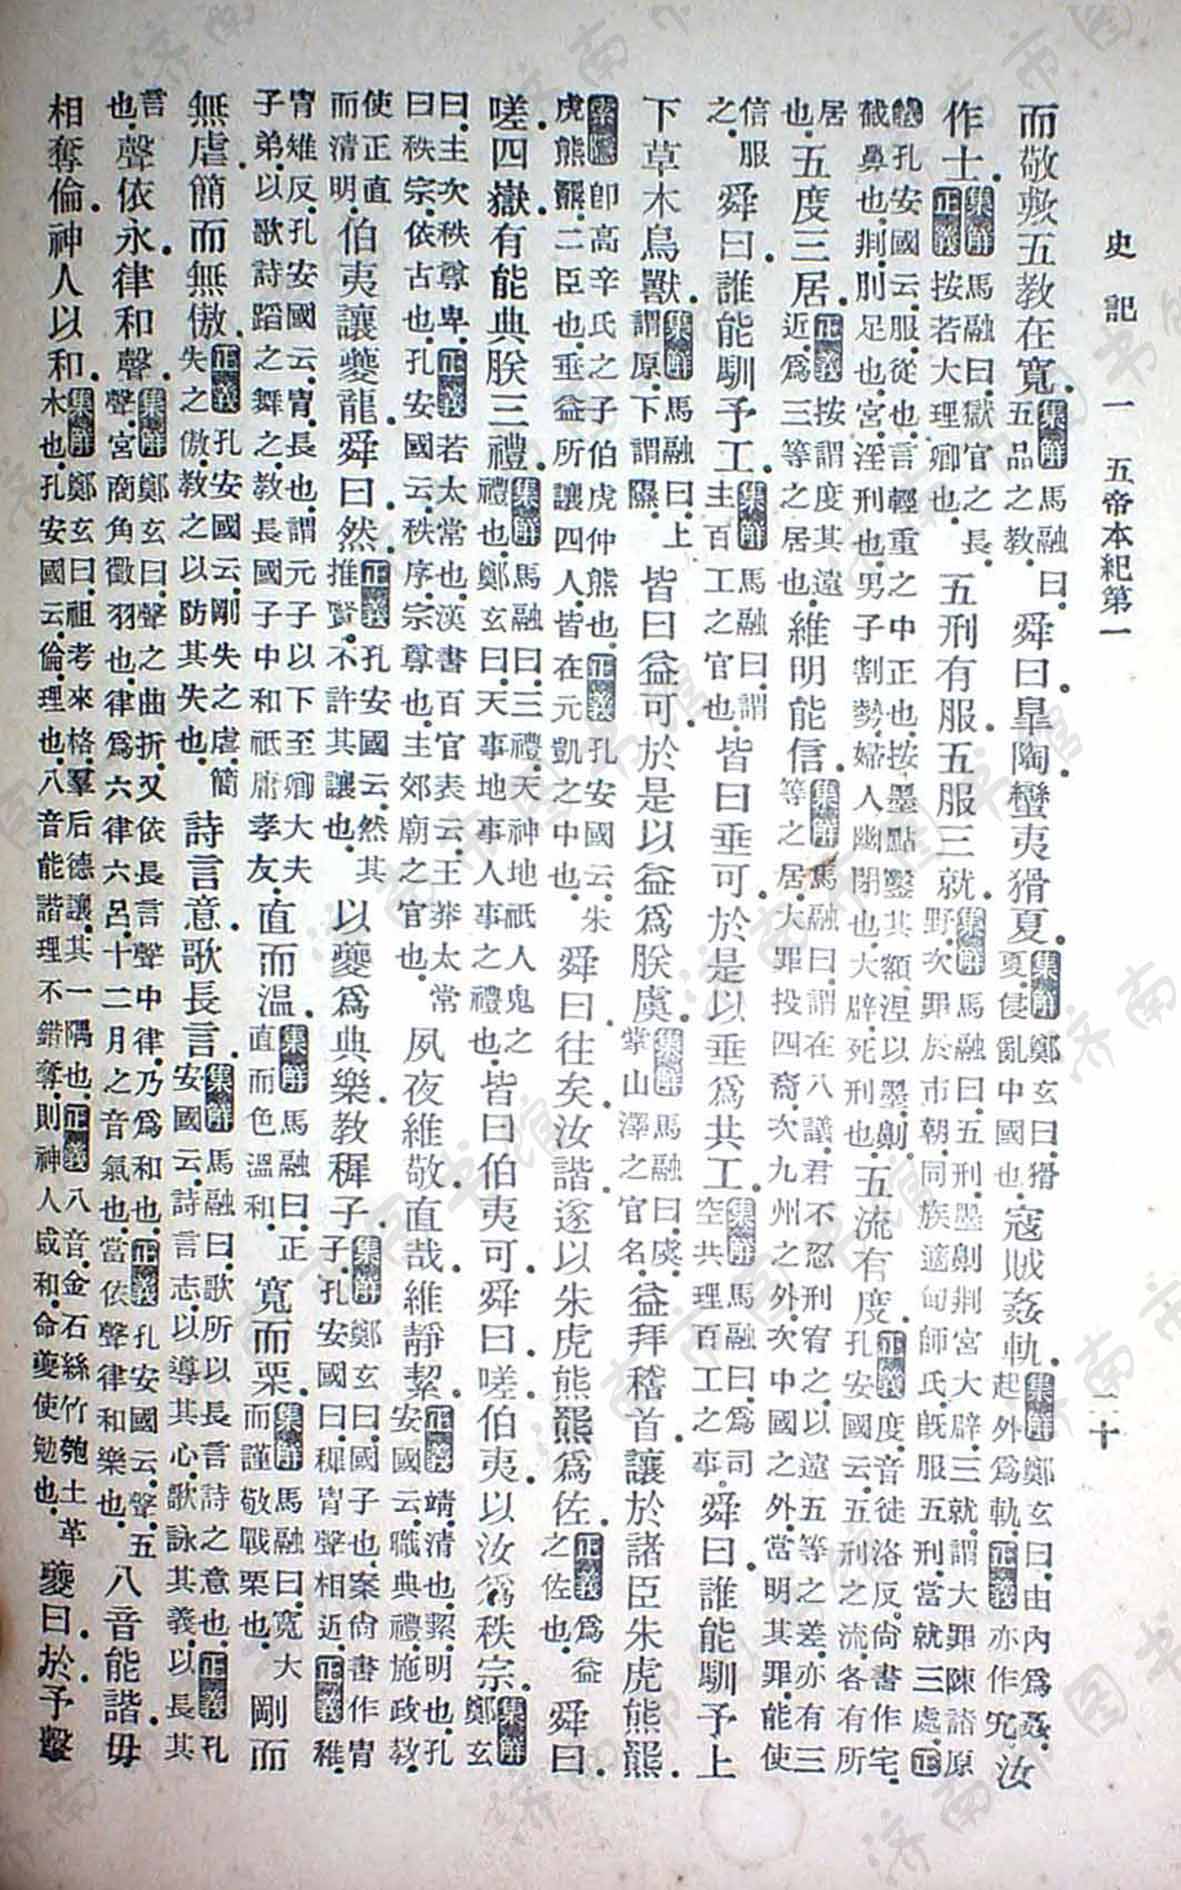 史記一 五帝本紀第一 二十
而敬敷五教在寬。集解馬融曰。五品之教。舜曰。皐陶。蠻夷猾夏。集解鄭玄曰。猾夏。侵亂中國也。寇賊姦軌。集解鄭玄曰。由內爲姦。起外爲軌。正義亦作宄。汝
作士。集解馬融曰。獄官之長。正義按若大理卿也。五刑有服。五服三就。集解馬融曰。五刑。墨劓剕宮大辟。三就。謂大罪陳諸原野。次罪於市朝。同族適甸師氏。旣服五刑。當就三處。正
義孔安國云。服。從也。言輕重之中正也。按。墨點鑿其額。涅以墨。劓。截鼻也。剕。刖足也。宮。淫刑也。男子割勢。婦人幽閉也。大辟。死刑也。五流有度。正義度音徒洛反。尙書作宅。孔安國云。五刑之流。各有所
居也。五度三居。正義按。謂度其遠近。爲三等之居也。維明能信。集解馬融曰。謂在八議。君不忍刑。宥之以遠。五等之差。亦有三等之居。大罪投四裔。次九州之外。次中國之外。當明其罪。能使
信服之。舜曰。誰能馴予工。集解馬融曰。謂主百工之官也。皆曰垂可。於是以垂爲共工。集解馬融曰。爲司空共理百工之事。舜曰。誰能馴予上
下草木鳥獸。集解馬融曰。上謂原。下謂隰。皆曰益可。於是以益爲朕虞。集解馬融曰。虞。掌山澤之官名。益拜稽首。讓於諸臣朱虎熊羆。
索隱卽高辛氏之子伯虎仲熊也。正義孔安國云。朱虎熊羆。二臣也。垂益所讓四人。皆在元凱之中也。舜曰。往矣汝諧。遂以朱虎熊羆爲佐。正義爲益之佐也。舜曰。
嗟。四嶽。有能典朕三禮。集解馬融曰。三禮。天神地祇人鬼之禮也。鄭玄曰。天事地事人事之禮也。皆曰伯夷可。舜曰。嗟。伯夷。以汝爲秩宗。集解鄭玄
曰。主次秩尊卑。正義若太常也。漢書百官表云。王莽太常曰秩宗。依古也。孔安國云。秩。序。宗。尊也。主郊廟之官也。夙夜維敬。直哉。維靜絜。正義靖。清也。絜。明也。孔安國云。職典禮。施政教。
使正直而清明。伯夷讓夔龍。舜曰。然。正義孔安國云。然其推賢。不許其讓也。以夔爲典樂。教稺子。集解鄭玄曰。國子也。案尙書作胄子。孔安國曰。稺胄聲相近。正義稚。
胄雉反。孔安國云。胄。長也。謂元子以下至卿大夫子弟。以歌詩蹈之舞之。教長國子中和祇庸孝友。直而溫。集解馬融曰。正直而色溫和。寬而栗。集解馬融曰。寬大而謹敬戰栗也。剛而
無虐。簡而無傲。正義孔安國云。剛失之虐。簡失之傲。教之以防其失也。詩言意。歌長言。集解馬融曰。歌所以長言詩之意也。正義孔安國云。詩言志以導其心。歌詠其義。以長其
言也。聲依永。律和聲。集解鄭玄曰。聲之曲折。又依長言。聲中律。乃爲和也。正義孔安國云。聲。五聲。宮商角徵羽也。律爲六律六呂。十二月之音氣也。當依聲律和樂也。八音能諧。毋
相奪倫。神人以和。集解鄭玄曰。祖考來格。羣后德讓。其一隅也。正義八音。金石絲竹匏土革木也。孔安國云。倫。理也。八音能諧。理不錯奪。則神人咸和。命夔使勉也。夔曰。於。予擊